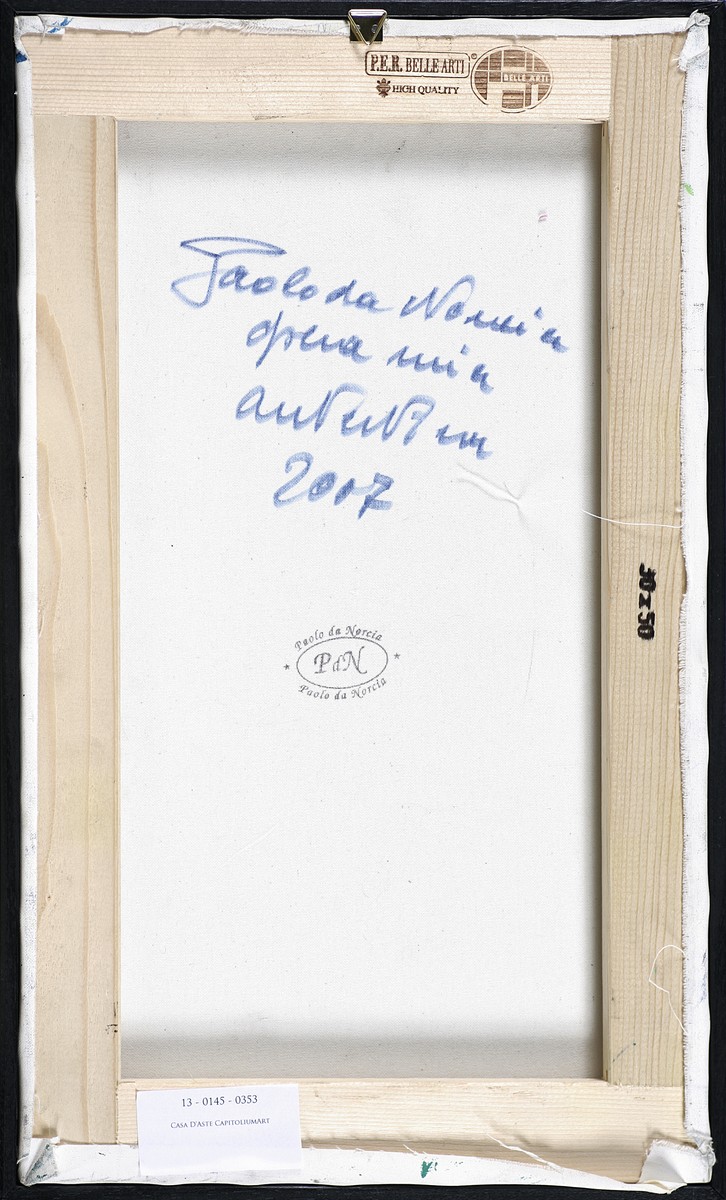 P.E.R. BELLE ARTI
HIGH QUALITY
BELLE ARTI
Paolo da Norcia
opera mia
autentica
2007
30x50
Paolo da Norcia
PdN
Paolo da Norcia
13 - 0145 - 0353
CASA D'ASTE CAPITOLIUMART